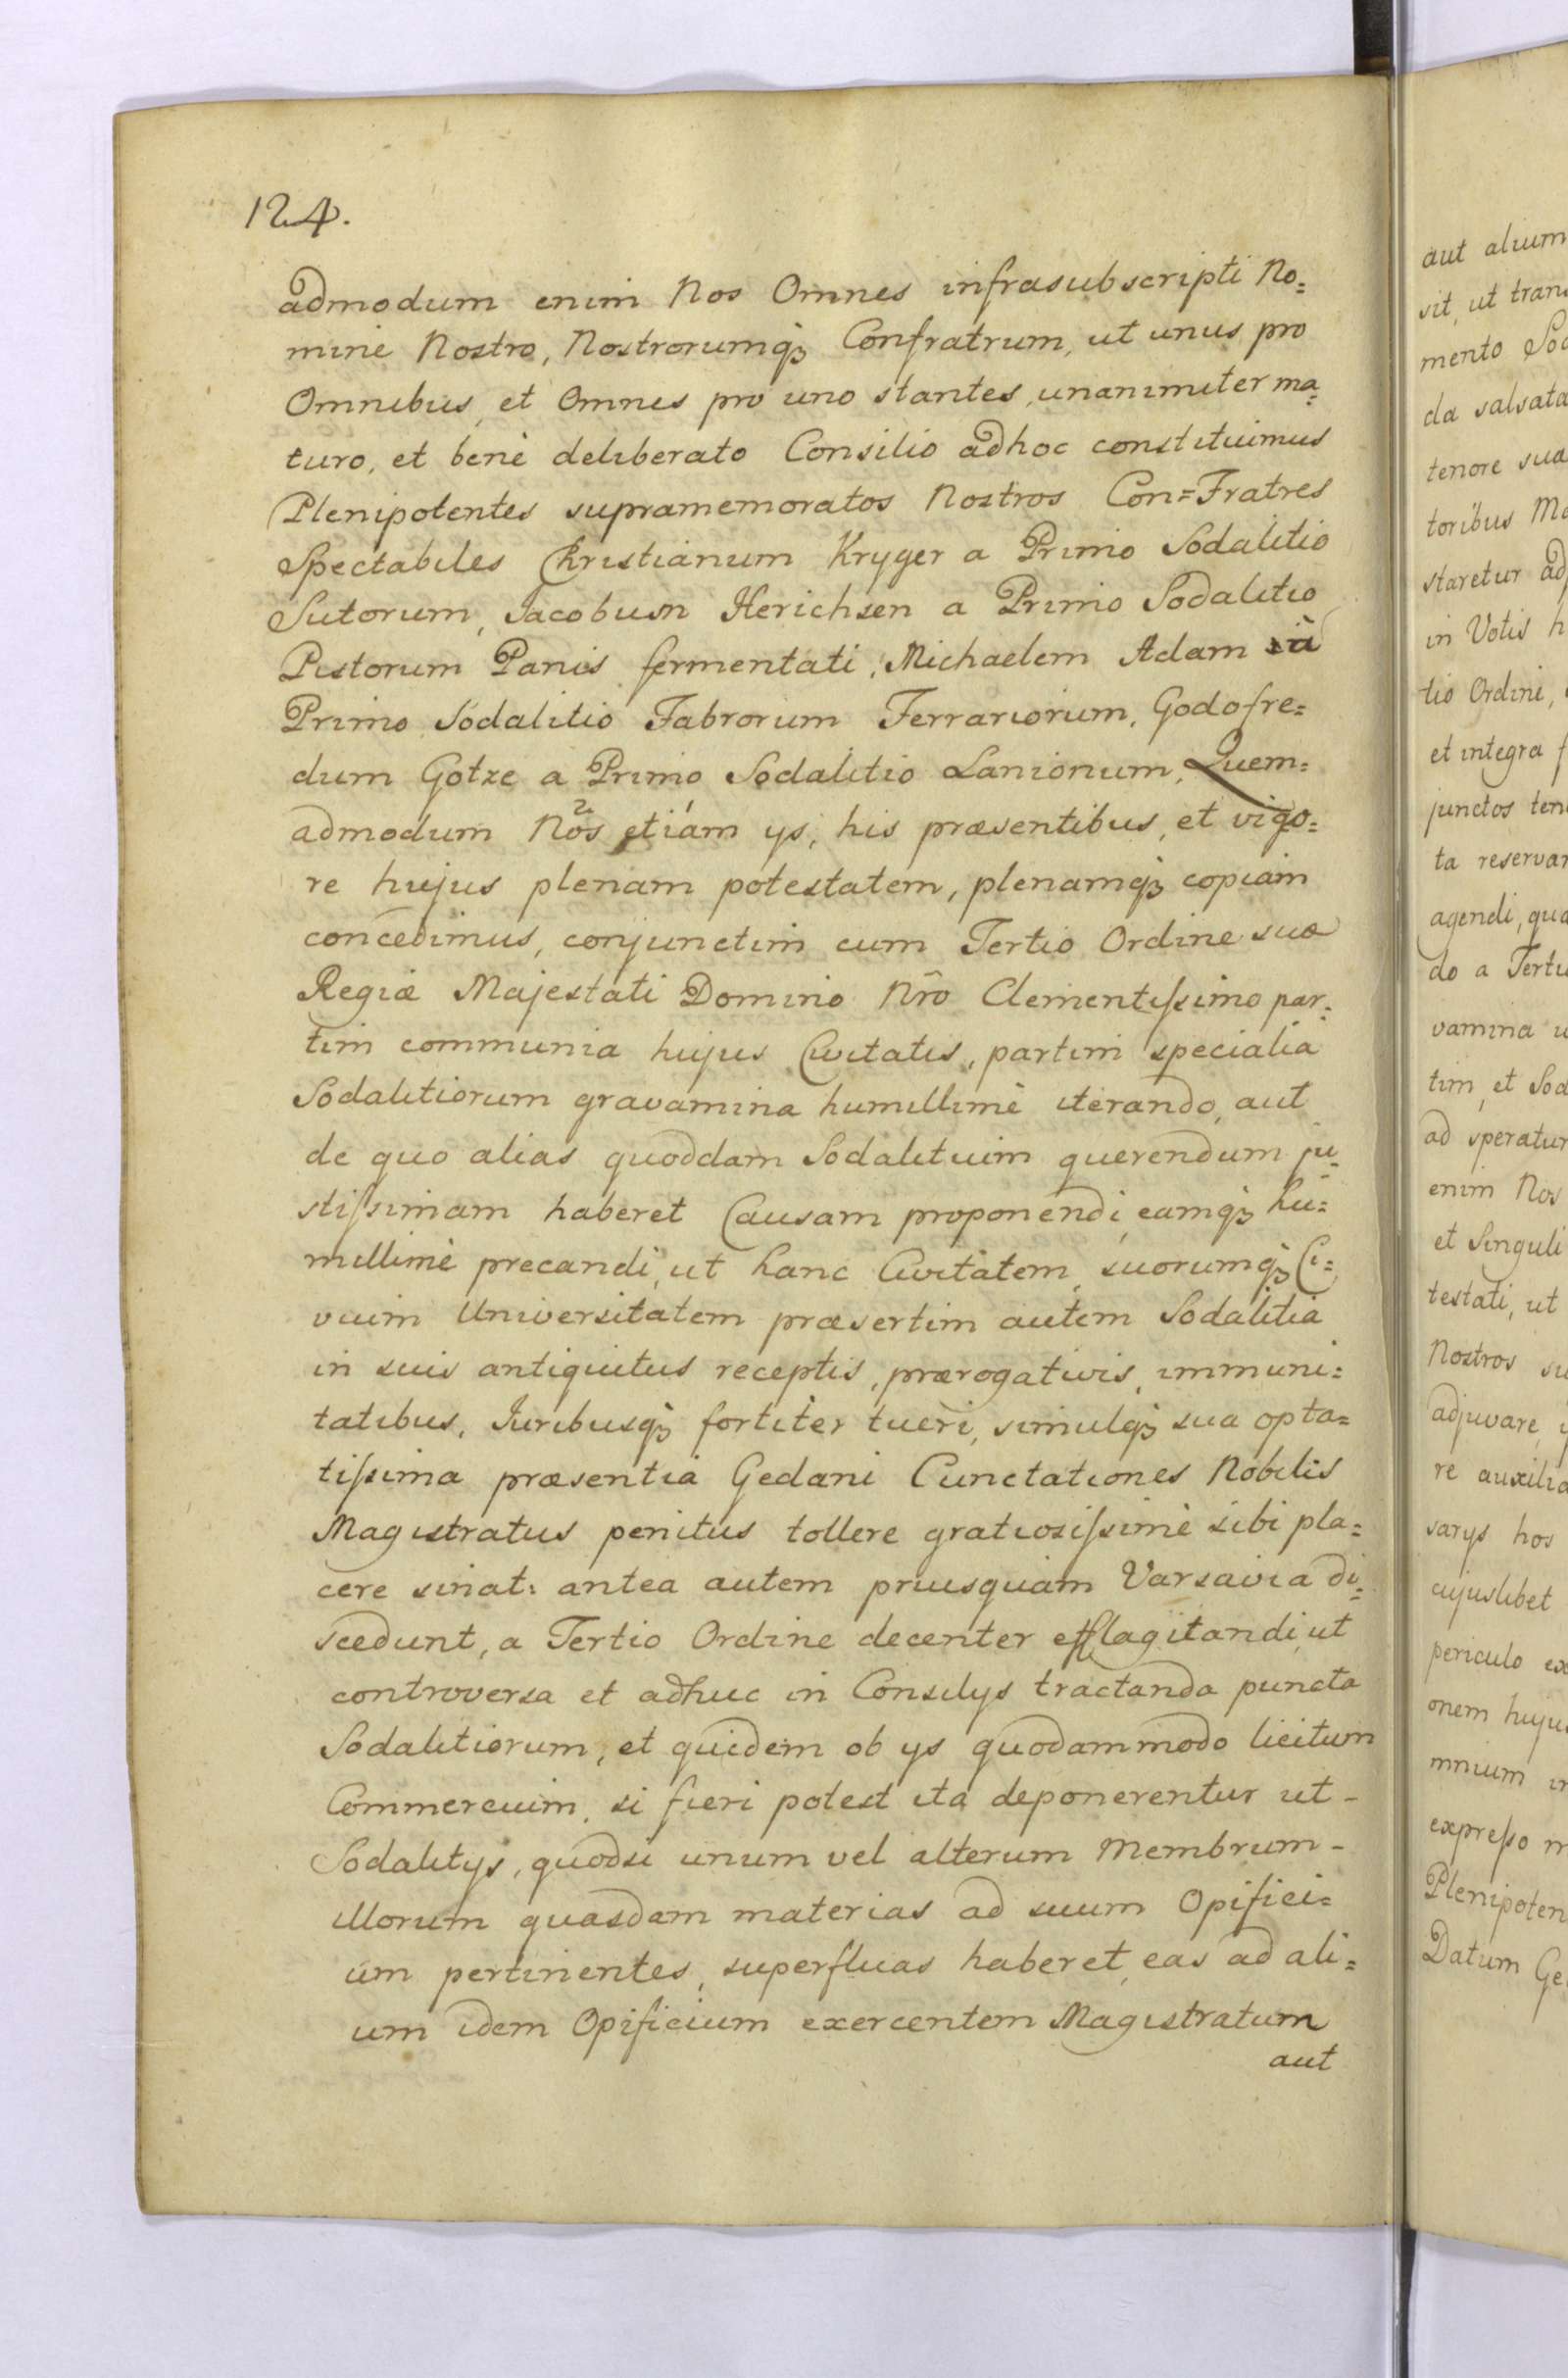 124.
admodum enim Nos Omnes infrasubscripti No=
mine Nostro, Nostrorumq3 Confratrum, ut unus pro
Omnibus, et Omnes pro uno stantes, unanimiter ma=
turo, et benè deliberato Consilio adhoc constituimus
Plenipotentes supramemoratos Nostros Con=Fratres
Spectabiles Christianum Kryger a Primo Sodalitio
Sutorum, Jacobum Herichsen a Primo Sodalitio
Pistorum Panis fermentati, Michaelem Adam à
Primo Sodalitio Fabrorum Ferrariorum, Godofre=
dum Gotze a Primo Sodalitio Lanionum, Quem=
admodum Nos etiám ys, his præsentibus, et vigo=
re hujus plenam potestatem, plenamq3 copiam
concedimus, conjunctim cum Tertio Ordine suæ
Regiæ Majestati Domino Nr̃o Clementissimo par=
tim communia hujus Civitatis, partim specialia
Sodalitiorum gravamina humillimè iterando, aut
de quo alias quoddam Sodalitium querendum ju=
stissimam haberet Causam proponendi, eamq3 hu=
millimè precandi, ut hanc Civitatem, suorumq3 Ci=
vium Universitatem præsertim autem Sodalitia
in suis antiquitus receptis, prærogativis, immuni=
tatibus, Juribusq3 fortiter tueri, simulq3 sua opta=
tissima præsentia Gedani Cunctationes Nobilis
Magistratus penitus tollere gratiosissimè sibi pla=
cere sinat: antea autem priusquam Varsavia di=
scedunt, a Tertio Ordine decenter efflagitandi, ut
controversa et adhuc in Consilys tractanda puncta
Sodalitiorum, et quidem ob ys quodammodo licitum
Commercium, si fieri potest ita deponerentur ut -
Sodalitys, quodsi unum vel alterum Membrum -
illorum quasdam materias ad suum Opifici=
um pertinentes, superfluas haberet, eas ad ali=
um idem Opificium exercentem Magistratum
aut
aut alium
sit, ut trans
mento
da salsata
tenore sua
toribus
staretur
in Votis
tio Ordini,
et integra
junctos
ta
agendi,
do a
vamina
tim, et
ad
enim Nos
et Singuli
testati, ut
Nostros
adjuvare,
re
sarys hos
cujuslibet
periculo
onem
mnium
expresso
Datum